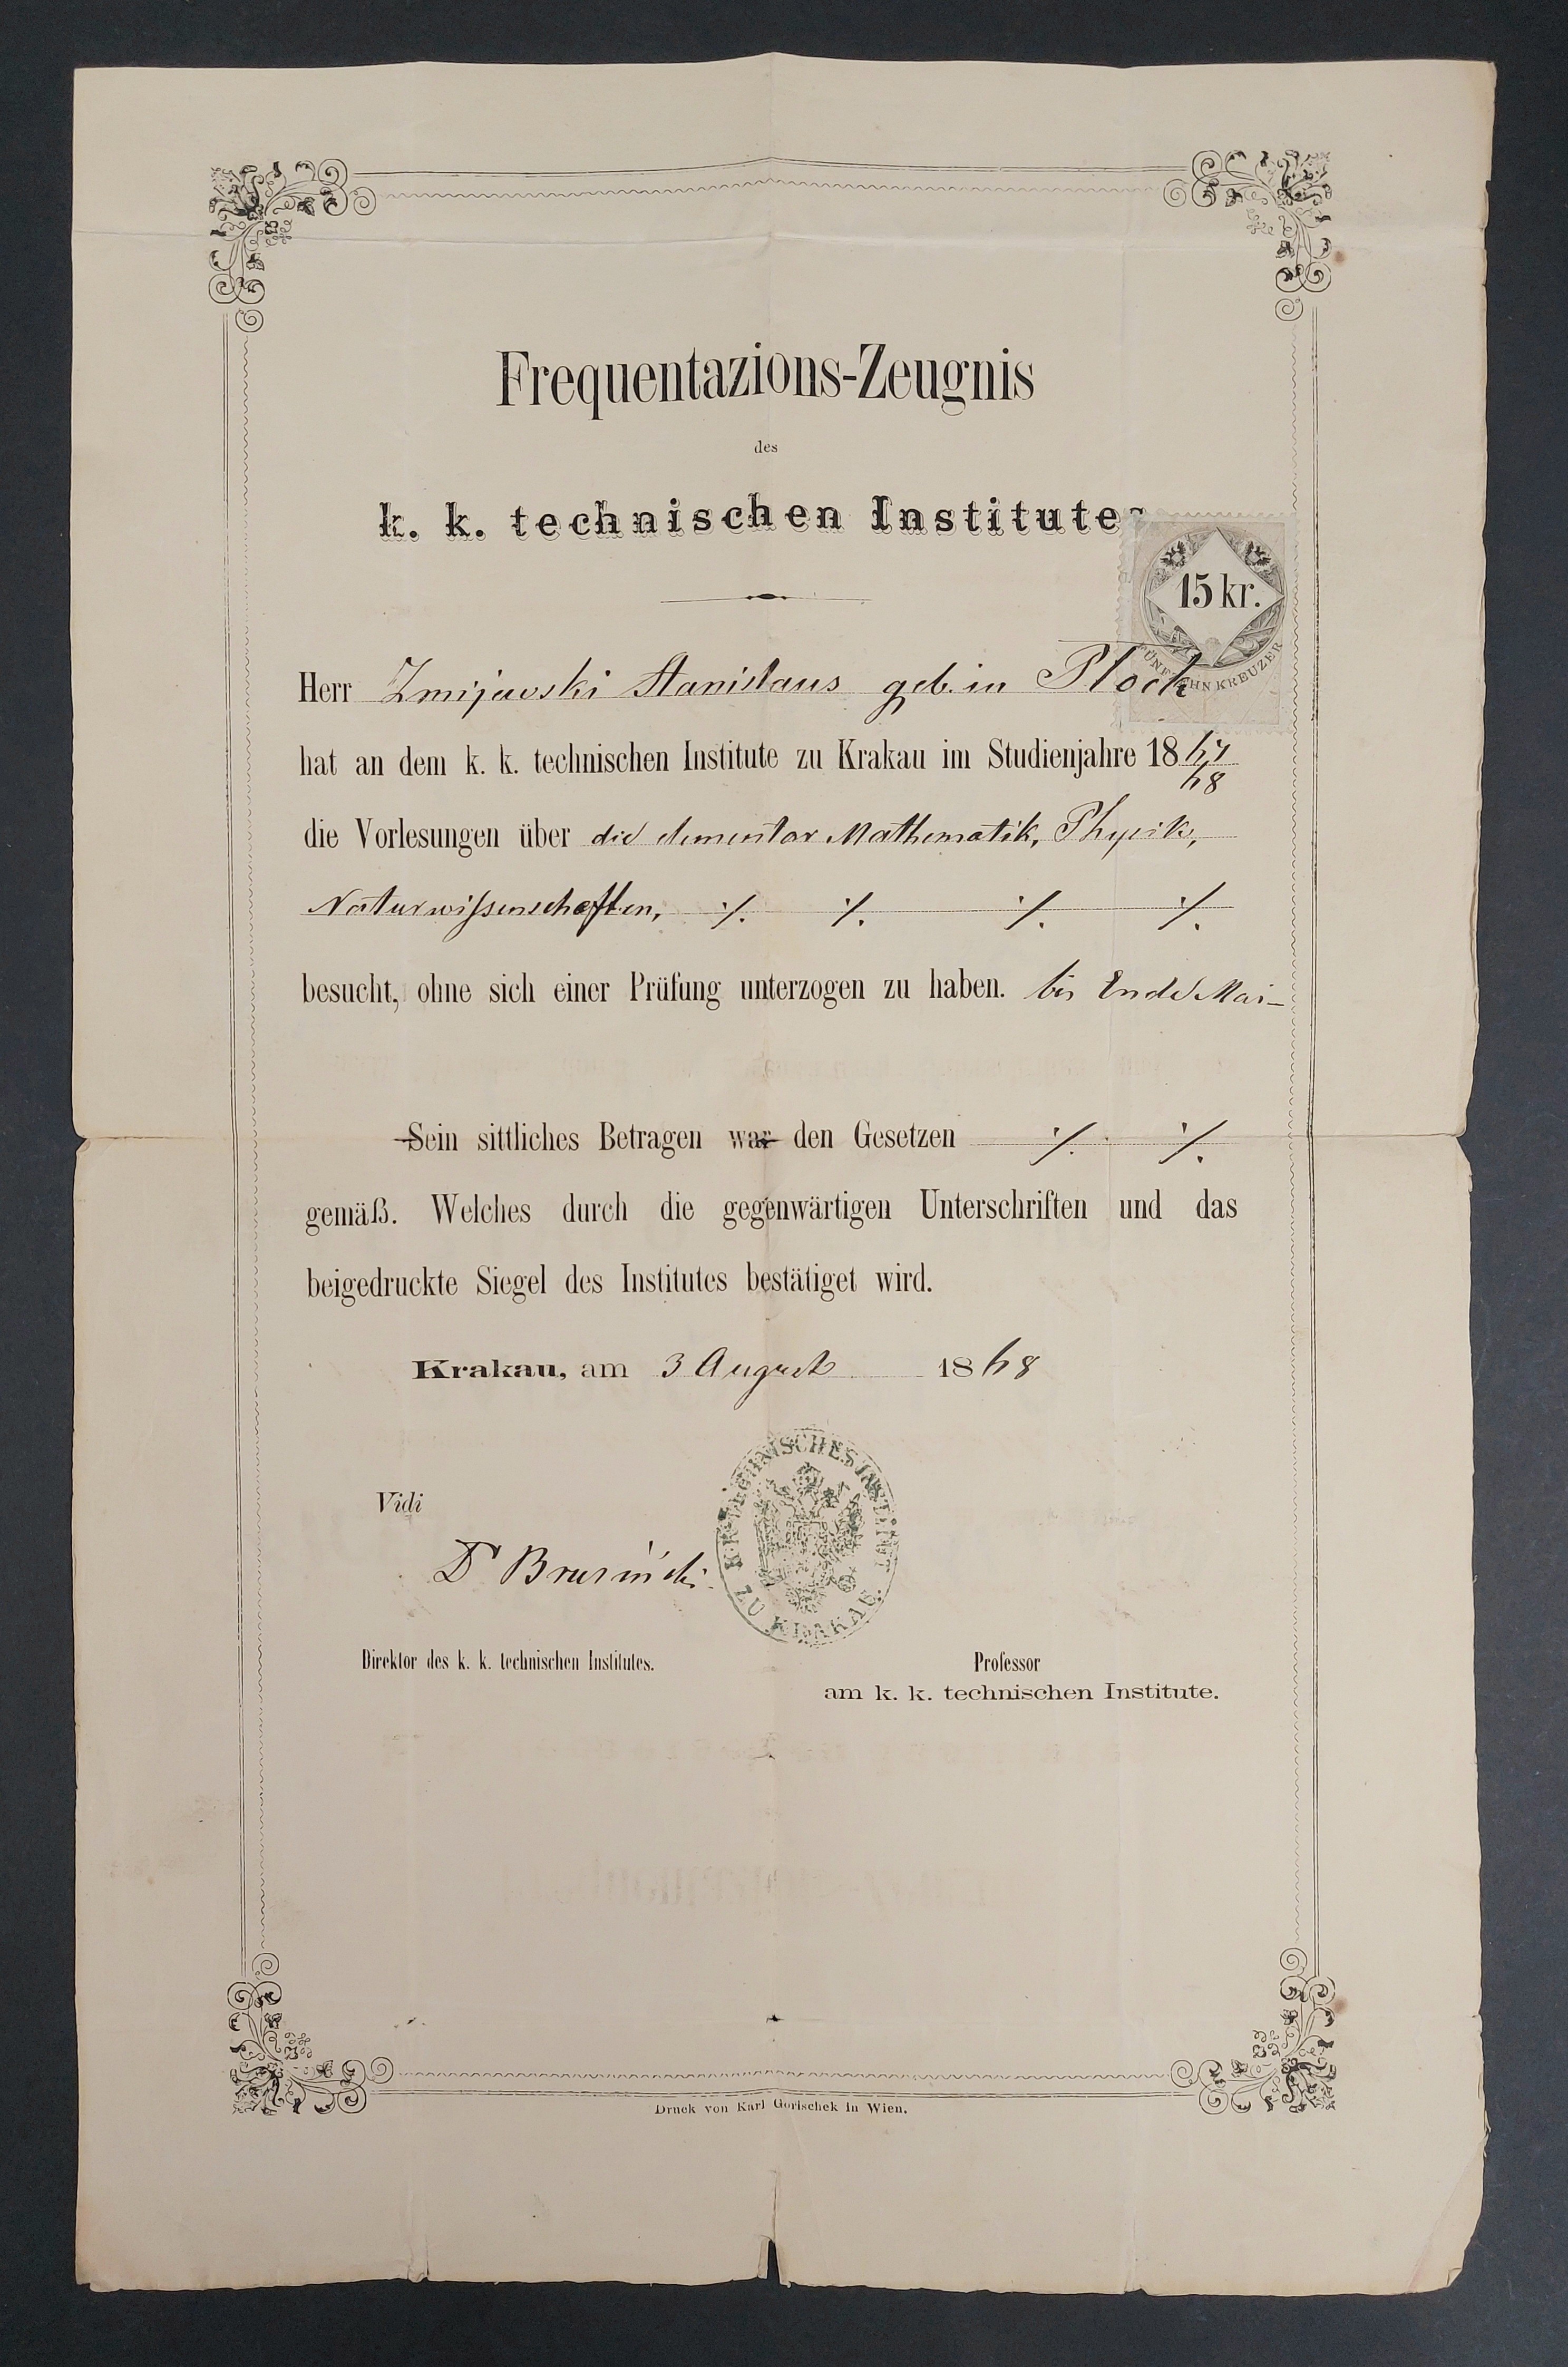 Frequentazions-Zeugnis
des
k. k. technischen Institutes
15 kr.
FÜNFZEHN KREUZER
Herr Zmijewski Stanislaus geb. in Plock
hat an dem k. k. technischen Institute zu Krakau im Studienjahre 1867/68
die Vorlesungen über die elementar Mathematik, Physik,
Naturwißenschaften, ·/. ·/. ·/. ·/.
besucht, ohne sich einer Prüfung unterzogen zu haben. bis Ende Mai
Sein sittliches Betragen war den Gesetzen ·/. ·/.
gemäß. Welches durch die gegenwärtigen Unterschriften und das
beigedruckte Siegel des Institutes bestätiget wird.
Krakau, am 3 August 1868
Vidi
Dr
K. K. TECHNISCHES INSTITUT
ZU KRAKAU.
Direktor des k. k. technischen Institutes.
Professor
am k. k. technischen Institute.
Druck von Karl Gorischek in Wien.